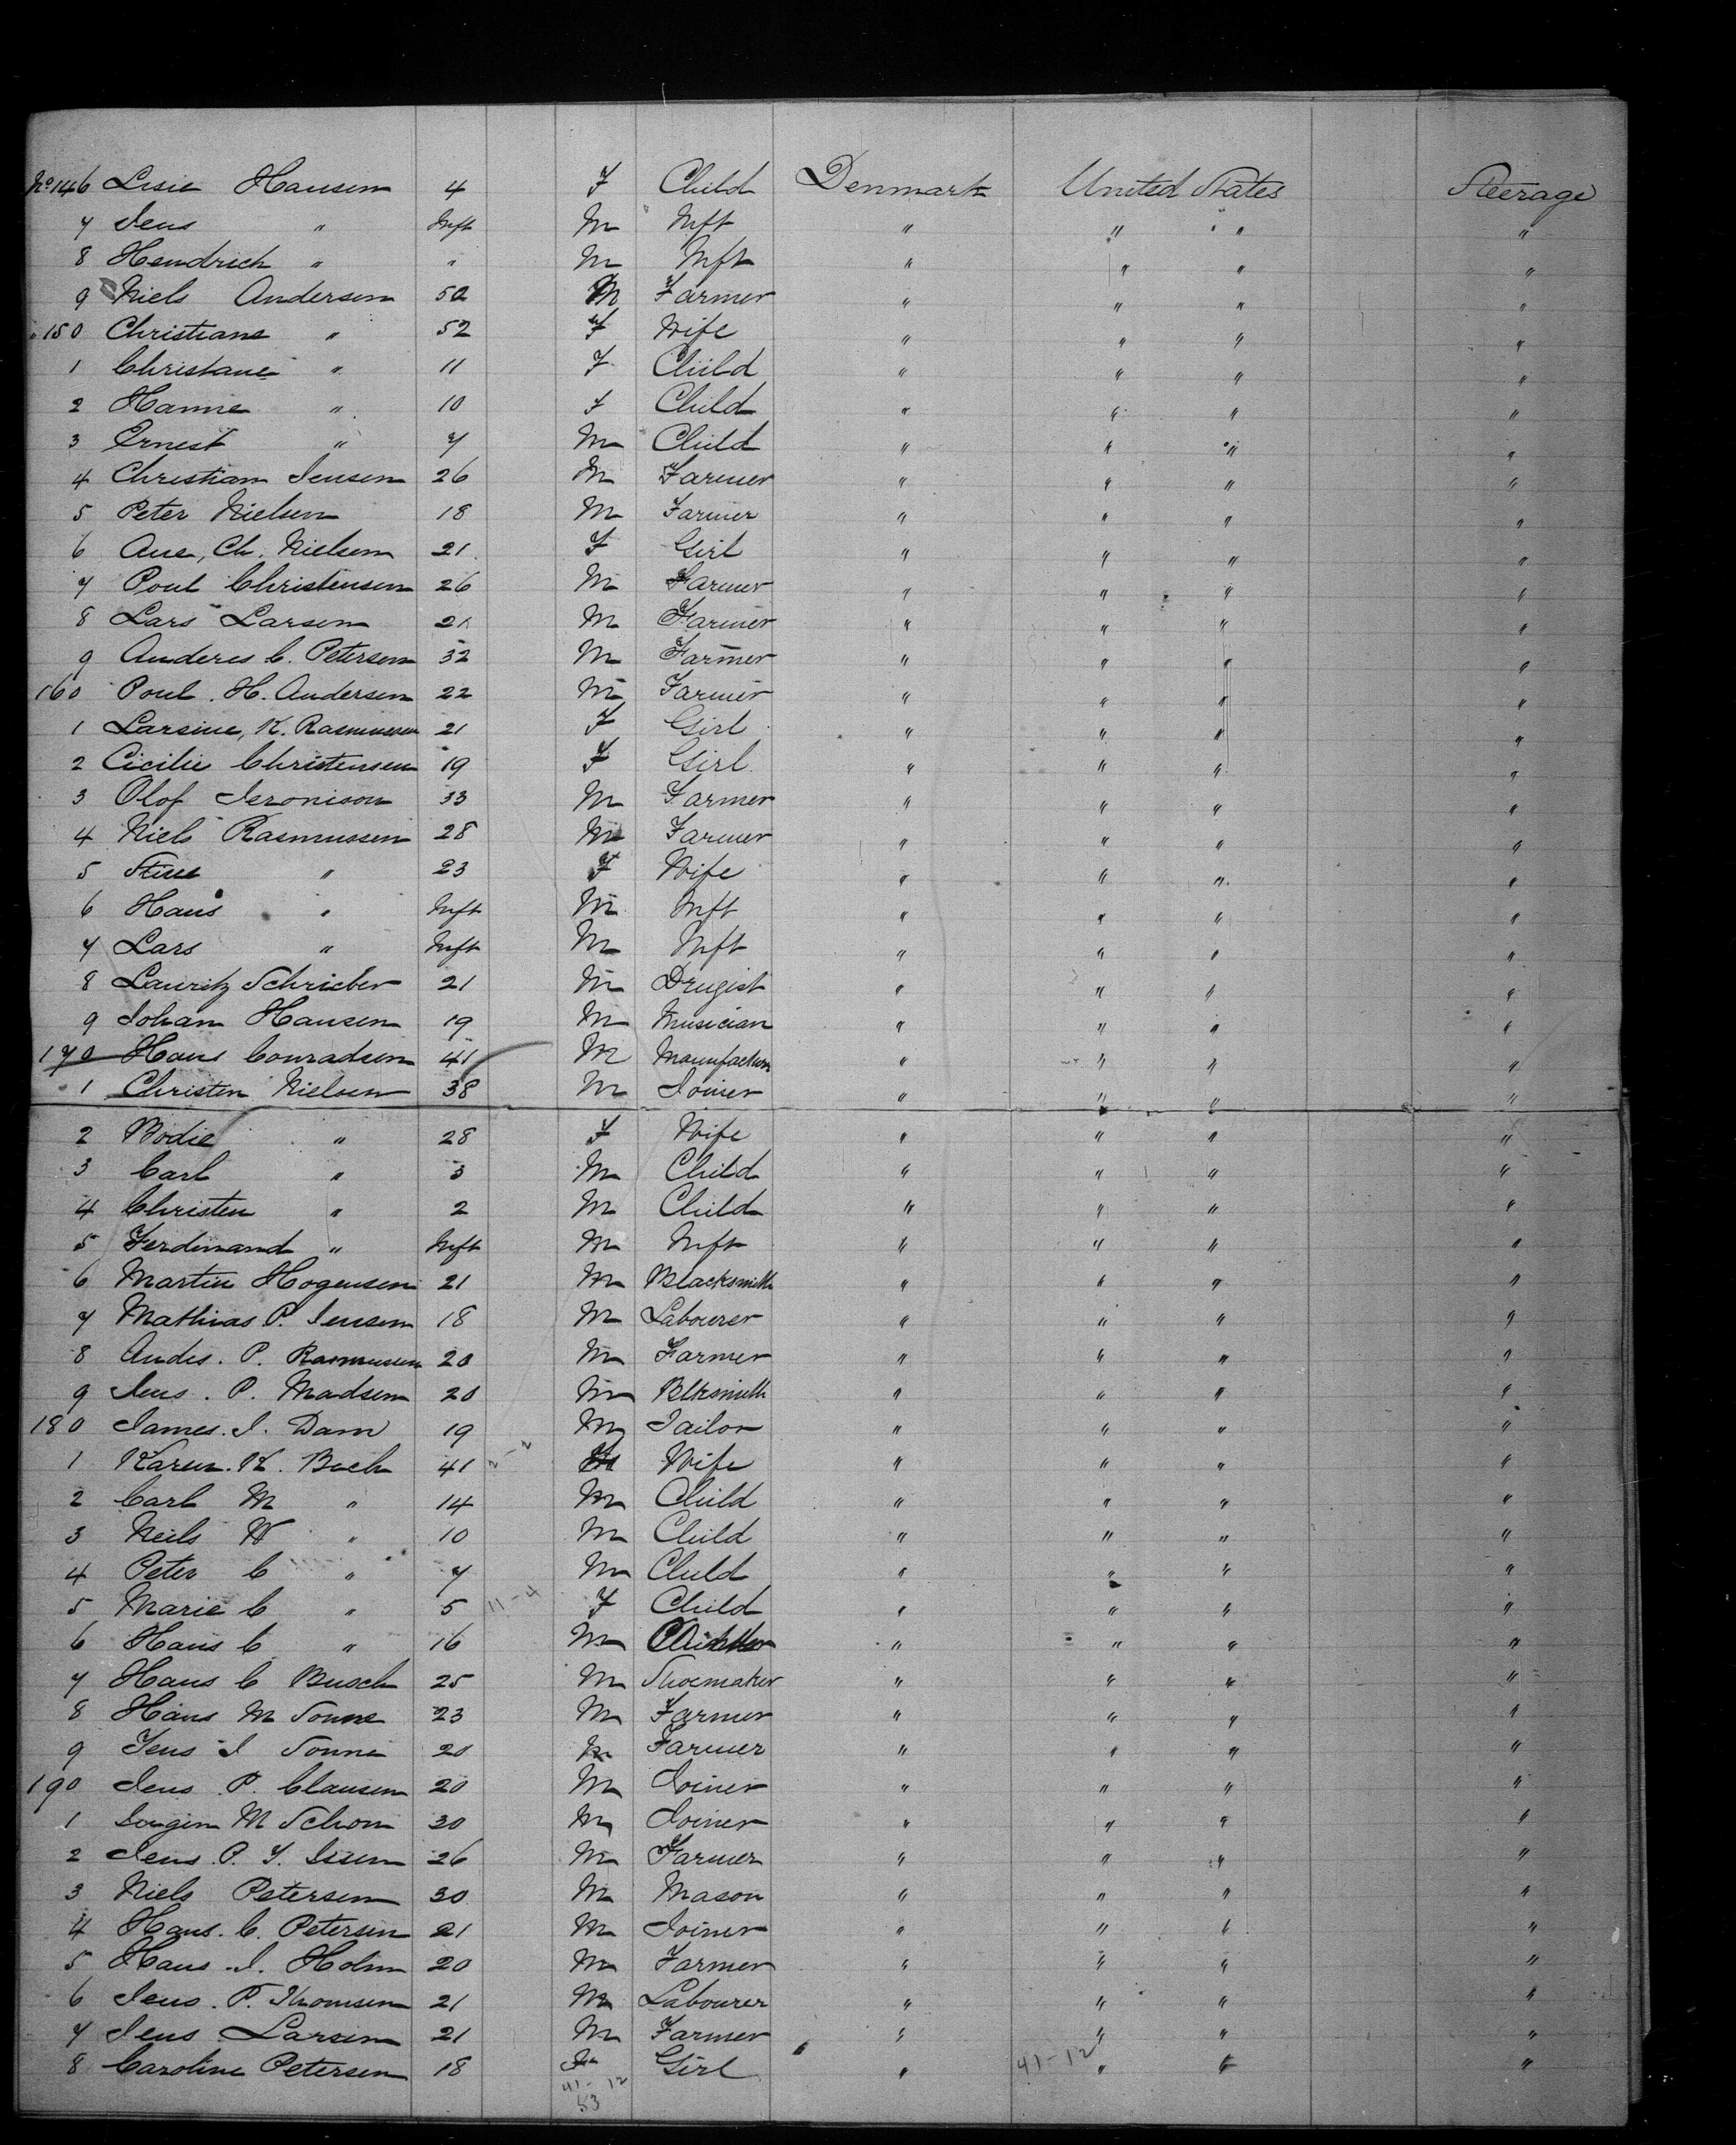 No 146 Lisie Hansen 4 F Child Denmark United States Steerage
7 Jens " Inft M Inft " " " "
8 Hendrich " " M Inft " " " "
9 Niels Andersen 52 M Farmer " " " "
150 Christiane " 52 F Wife " " " "
1 Christane " 11 F Child " " " "
2 Hanne " 10 F Child " " " "
3 Ernest " 7 M Child " " " "
4 Christian Jensen 26 M Farmer " " " "
5 Peter Nielsen 18 M Farmer " " " "
6 Ane, Ch. Nielsen 21 F Girl " " " "
7 Poul Christensen 26 M Farmer " " " "
8 Lars Larsen 21 M Farmer " " " "
9 Anderes C. Petersen 32 M Farmer " " " "
160 Poul. H. Andersen 22 M Farmer " " " "
1 Larsine, K. Rasmussen 21 F Girl " " " "
2 Cicilie Christensen 19 F Girl " " " "
3 Olof Jeronison 33 M Farmer " " " "
4 Niels Rasmussen 28 M Farmer " " " "
5 Stine " 23 F Wife " " " "
6 Hans " Inft M Inft " " " "
7 Lars " Inft M Inft " " " "
8 Lauritz Schrieber 21 M Drugist " " " "
9 Johan Hansen 19 M Musician " " " "
170 Hans Conradsen 41 M " " " "
1 Christen Nielsen 38 M Joiner " " " "
2 Bodie " 28 F Wife " " " "
3 Carl " 3 M Child " " " "
4 Christen " 2 M Child " " " "
5 Ferdinand " Inft M Inft " " " "
6 Martin Hogensen 21 M Blacksmith " " " "
7 Mathias P. Jensen 18 M Labourer " " " "
8 Andes. P. Rasmussen 20 M Farmer " " " "
9 Jens. P. Madsen 20 M Blksmith " " " "
180 James. J. Dam 19 M Tailor " " " "
1 Karen. K. Bech 41 Wife " " " "
2 Carl M " 14 M Child " " " "
3 Neils W " 10 M Child " " " "
4 Peter C " 7 M Child " " " "
5 Marie C " 5 11-4 F Child " " " "
6 Hans C " 16 M " " " "
7 Hans C Busch 25 M Shoemaker " " " "
8 Hans M Sonne 23 M Farmer " " " "
9 Jens J Sonne 20 M Farmer " " " "
190 Jens P. Clausen 20 M Joiner " " " "
1 M Schon 30 M Joiner " " " "
2 Jens. P. Y. Issen 26 M Farmer " " " "
3 Niels Petersen 30 M Mason " " " "
4 Hans. C. Petersen 21 M Joiner " " " "
5 Hans. J. Holm 20 M Farmer " " " "
6 Jens. P. Thomsen 21 M Labourer " " " "
7 Jens Larsen 21 M Farmer " " " "
8 Caroline Petersen 18 F Girl " 41-12 " " "
41-12
53